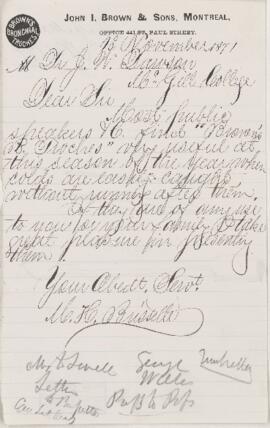 BROWN'S BRONCHIAL TROCHES
JOHN I. BROWN & SONS, MONTREAL,
OFFICE 441 ST. PAUL STREET.
13 November 1871
Dr. J. W. Dawson
McGill College
Dear Sir
Most public
speakers &c. find "Brown's
Br. Troches" very useful at
this season of the year when
colds are easily caught
without running after them.
If they are of any use
to you, or your family I take
great pleasure in presenting
them.
Your Obedt. Servt.
M. H. Brissette
George
Wales
Umbrella
Letter
Puss in